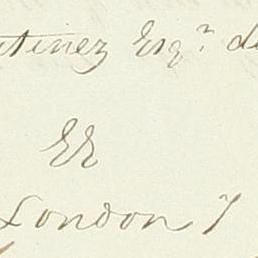 utinez Esqr. d
&&
London 7